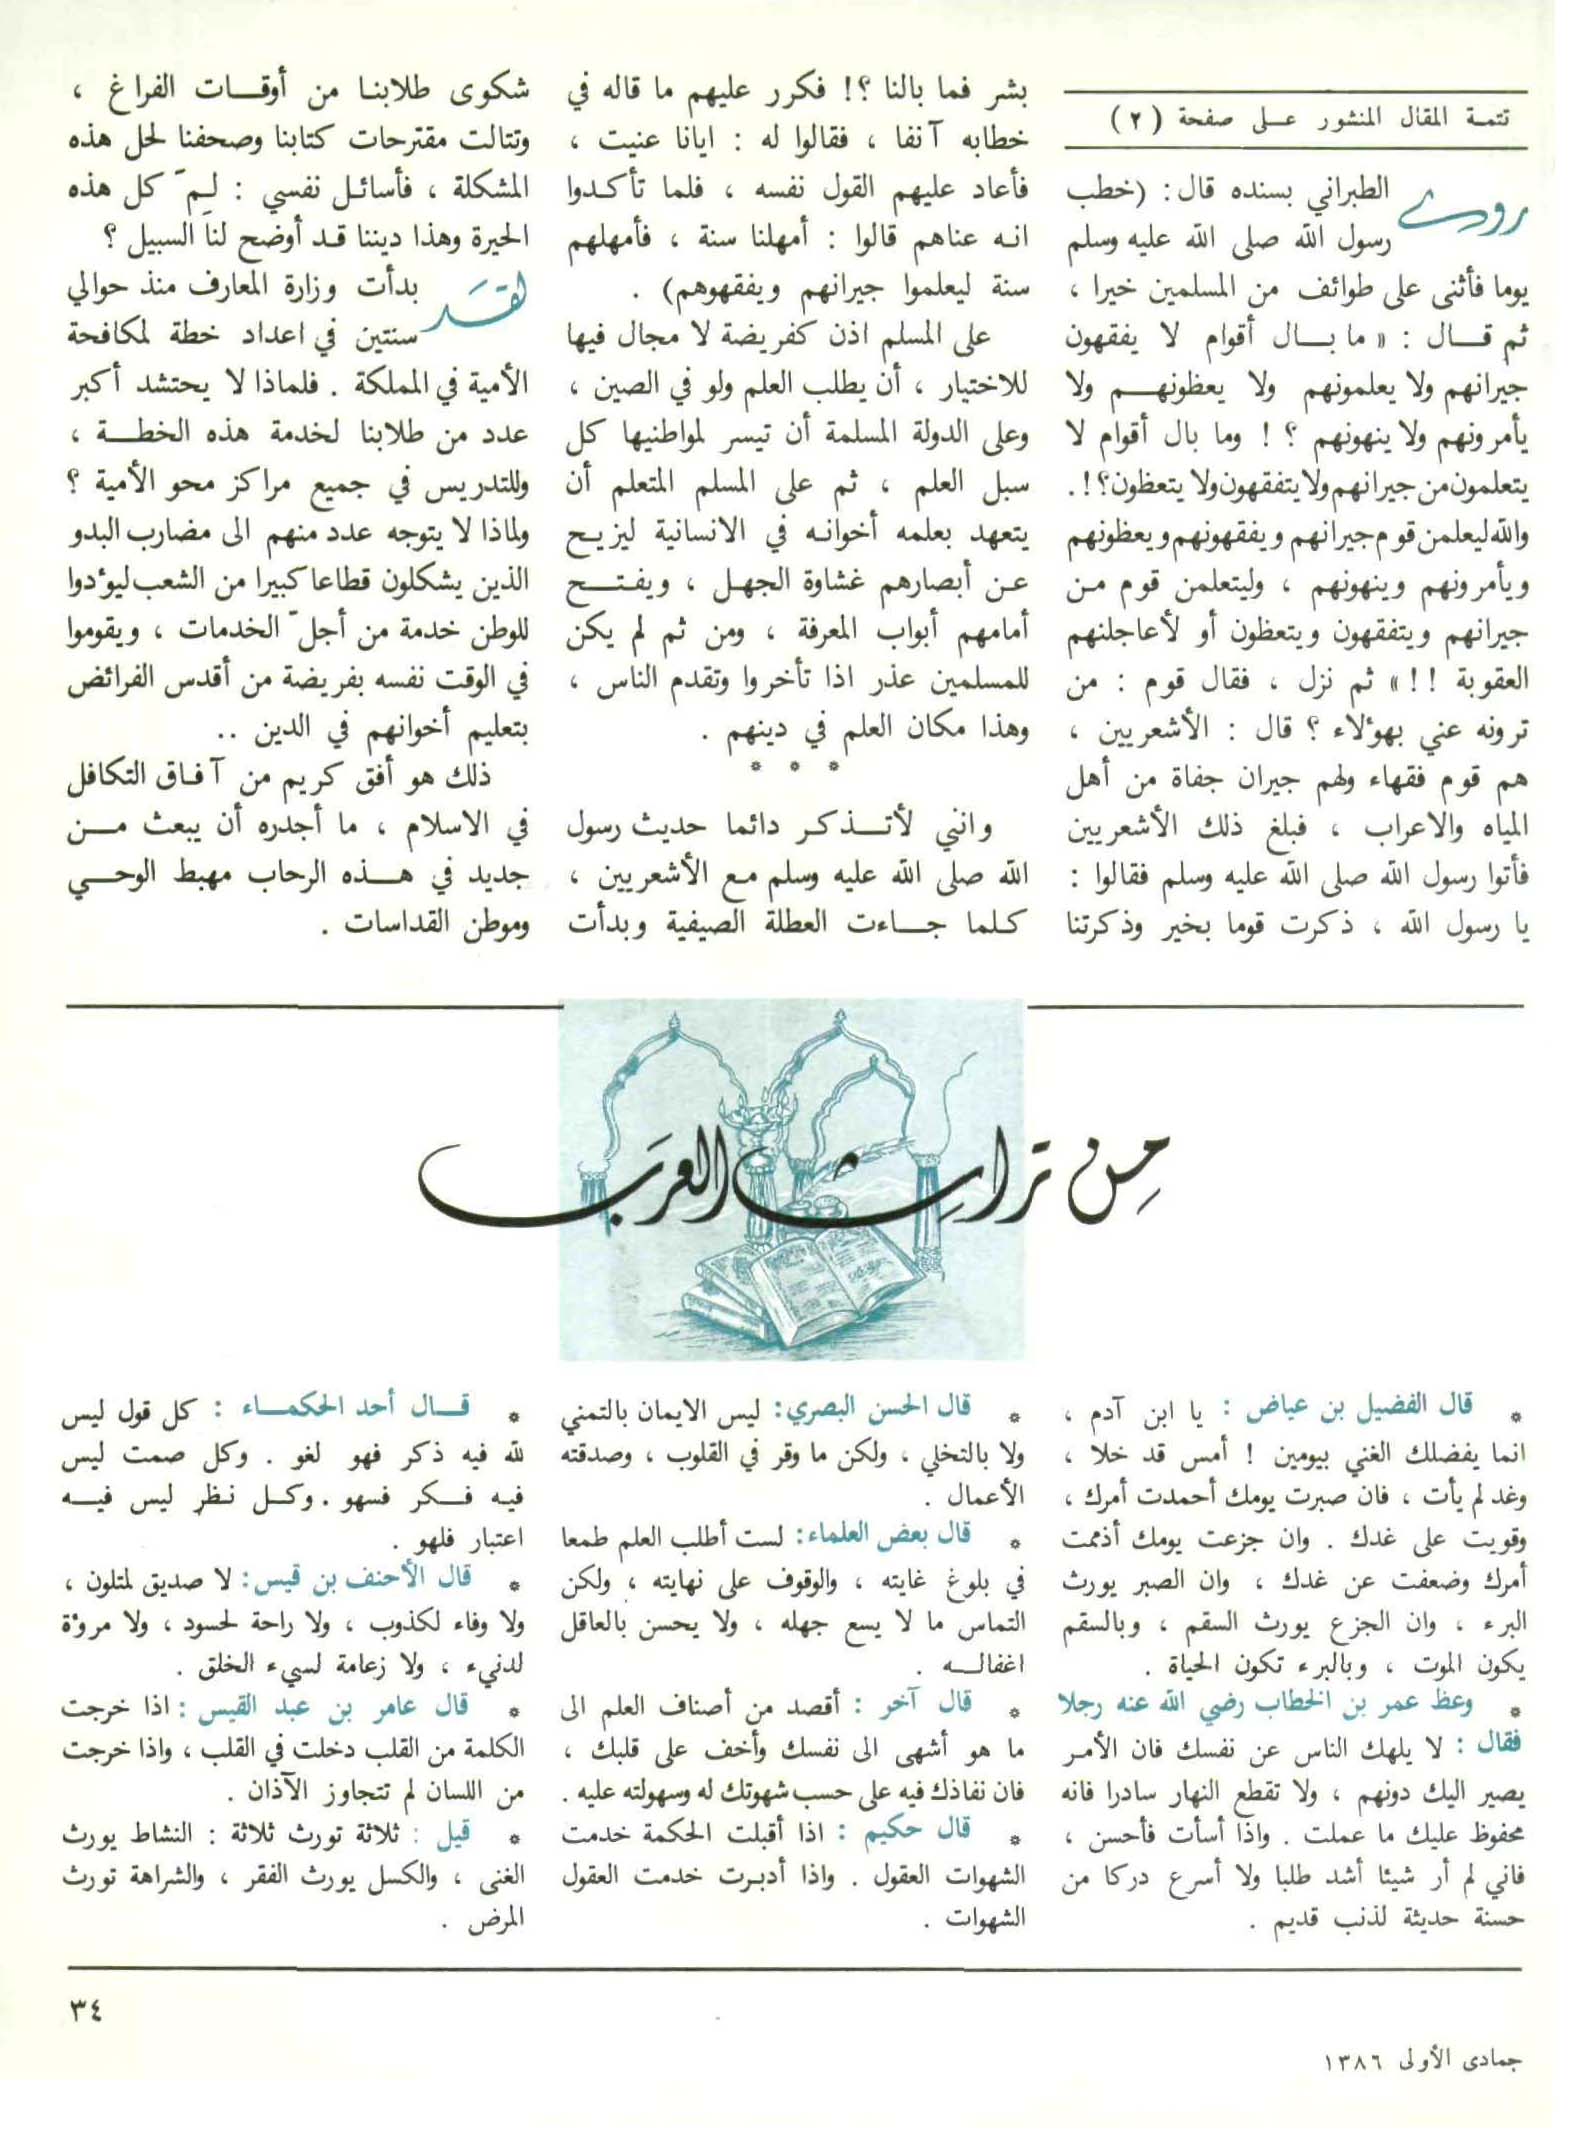 تتمة المقال المنشور على صفحة (٢)
روى الطبراني بسنده قال: (خطب
رسول الله صلى الله عليه وسلم
يوما فأثنى على طوائف من المسلمين خيرا ،
ثم قال : « ما بال أقوام لا يفقهون
جيرانهم ولا يعلمونهم ولا يعظونهم ولا
يأمرونهم ولا ينهونهم ؟ ! وما بال أقوام لا
يتعلمون من جيرانهم ولا يتفقهون ولا يتعظون؟!.
والله ليعلمن قوم جيرانهم ويفقهونهم ويعظونهم
ويأمرونهم وينهونهم ، وليتعلمن قوم من
جيرانهم ويتفقهون ويتعظون أو لأعاجلنهم
العقوبة !!» ثم نزل ، فقال قوم : من
ترونه عني بهؤلاء ؟ قال : الأشعريين ،
هم قوم فقهاء ولهم جيران جفاة من أهل
المياه والاعراب ، فبلغ ذلك الأشعريين
فأتوا رسول الله صلى الله عليه وسلم فقالوا :
يا رسول الله ، ذكرت قوما بخير وذكرتنا
بشر فما بالنا ؟! فكرر عليهم ما قاله في
خطابه آنفا ، فقالوا له : ايانا عنيت ،
فأعاد عليهم القول نفسه ، فلما تأكدوا
انه عناهم قالوا : أمهلنا سنة ، فأمهلهم
سنة ليعلموا جيرانهم ويفقهوهم) .
على المسلم اذن كفريضة لا مجال فيها
للاختيار ، أن يطلب العلم ولو في الصين ،
وعلى الدولة المسلمة أن تيسر لمواطنيها كل
سبل العلم ، ثم على المسلم المتعلم أن
يتعهد بعلمه أخوانه في الانسانية ليزيح
عن أبصارهم غشاوة الجهل ، ويفتح
أمامهم أبواب المعرفة ، ومن ثم لم يكن
للمسلمين عذر اذا تأخروا وتقدم الناس ،
وهذا مكان العلم في دينهم .
* * *
وانني لأتذكر دائما حديث رسول
الله صلى الله عليه وسلم مع الأشعريين ،
كلما جاءت العطلة الصيفية وبدأت
شكوى طلابنا من أوقات الفراغ ،
وتتالت مقترحات كتابنا وصحفنا لحل هذه
المشكلة ، فأسائل نفسي : لِمَ كل هذه
الحيرة وهذا ديننا قد أوضح لنا السبيل ؟
لقد بدأت وزارة المعارف منذ حوالي
سنتين في اعداد خطة لمكافحة
الأمية في المملكة . فلماذا لا يحتشد أكبر
عدد من طلابنا لخدمة هذه الخطة ،
وللتدريس في جميع مراكز محو الأمية ؟
ولماذا لا يتوجه عدد منهم الى مضارب البدو
الذين يشكلون قطاعا كبيرا من الشعب ليؤدوا
للوطن خدمة من أجلّ الخدمات ، ويقوموا
في الوقت نفسه بفريضة من أقدس الفرائض
بتعليم أخوانهم في الدين ..
ذلك هو أفق كريم من آفاق التكافل
في الاسلام ، ما أجدره أن يبعث من
جديد في هذه الرحاب مهبط الوحي
وموطن القداسات .
من تراث العرب
* قال الفضيل بن عياض : يا ابن آدم ،
انما يفضلك الغني بيومين ! أمس قد خلا ،
وغد لم يأت ، فان صبرت يومك أحمدت أمرك ،
وقويت على غدك . وان جزعت يومك أذممت
أمرك وضعفت عن غدك ، وان الصبر يورث
البرء ، وان الجزع يورث السقم ، وبالسقم
يكون الموت ، وبالبرء تكون الحياة .
* وعظ عمر بن الخطاب رضي الله عنه رجلا
فقال : لا يلهك الناس عن نفسك فان الأمر
يصير اليك دونهم ، ولا تقطع النهار سادرا فانه
محفوظ عليك ما عملت . واذا أسأت فأحسن ،
فاني لم أر شيئا أشد طلبا ولا أسرع دركا من
حسنة حديثة لذنب قديم .
* قال الحسن البصري: ليس الايمان بالتمني
ولا بالتخلي ، ولكن ما وقر في القلوب ، وصدقته
الأعمال .
* قال بعض العلماء: لست أطلب العلم طمعا
في بلوغ غايته ، والوقوف على نهايته ، ولكن
التماس ما لا يسع جهله ، ولا يحسن بالعاقل
اغفاله .
* قال آخر : أقصد من أصناف العلم الى
ما هو أشهى الى نفسك وأخف على قلبك ،
فان نفاذك فيه على حسب شهوتك له وسهولته عليه .
* قال حكيم : اذا أقبلت الحكمة خدمت
الشهوات العقول . واذا أدبرت خدمت العقول
الشهوات .
* قال أحد الحكماء : كل قول ليس
لله فيه ذكر فهو لغو . وكل صمت ليس
فيه فكر فسهو . وكل نظر ليس فيه
اعتبار فلهو .
* قال الأحنف بن قيس: لا صديق لمتلون ،
ولا وفاء لكذوب ، ولا راحة لحسود ، ولا مروءة
لدنيء ، ولا زعامة لسيء الخلق .
* قال عامر بن عبد القيس : اذا خرجت
الكلمة من القلب دخلت في القلب ، واذا خرجت
من اللسان لم تتجاوز الآذان .
* قيل : ثلاثة تورث ثلاثة : النشاط يورث
الغنى ، والكسل يورث الفقر ، والشراهة تورث
المرض .
٣٤
جمادى الأولى ١٣٨٦